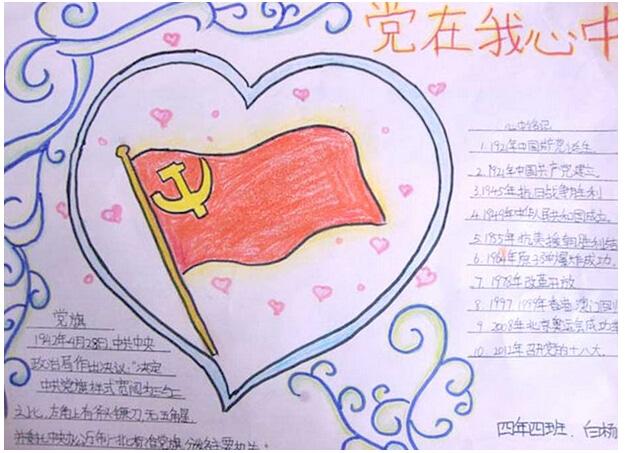 党在我心中
心中铭记
1.1921年中国共产党诞生
2.1921年中国共产党建立
3.1945年抗日战争胜利
4.1949年中华人民共和国成立
5.1955年抗美援朝胜利结
6.1964年原子弹爆炸成功
7.1978年改革开放
8.1997 1999年香港澳门回归
9.2008年北京奥运会成功举
10.2012年召开党的十八大.
党旗
1942年4月28日,中共中央
政治局作出决议:"决定
中共党旗样式宽阔为三与二
之比,左角上有斧头镰刀,无五角星
并委托中央办公厅制一批标准党旗,分给主要机关"
四年四班.白杨